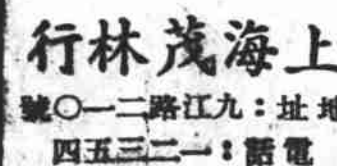 上海茂林行
地址：九江路二一〇號
電話：一二三五四